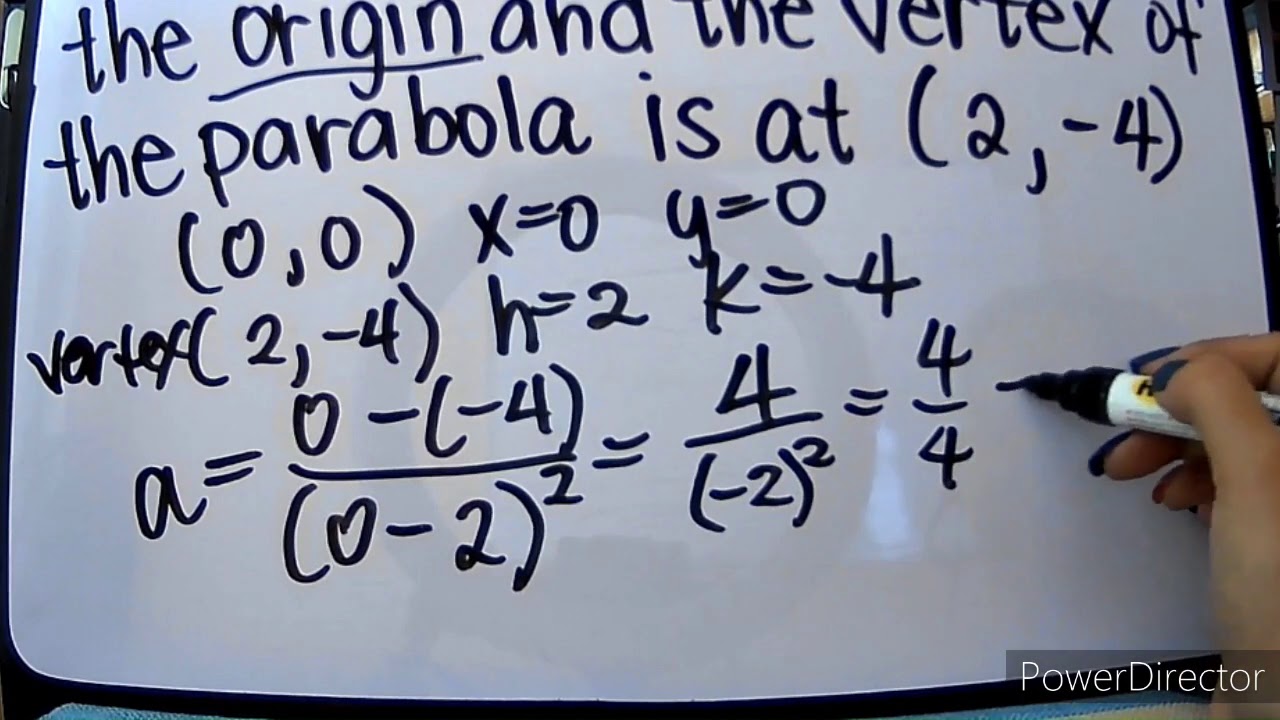 the origin and the vertex of
the parabola is at (2, -4)
(0,0) x=0 y=0
vertex(2, -4) h=2 k=-4
a= 0-(-4)/(0-2)² = 4/(-2)² = 4/4 -
PowerDirector